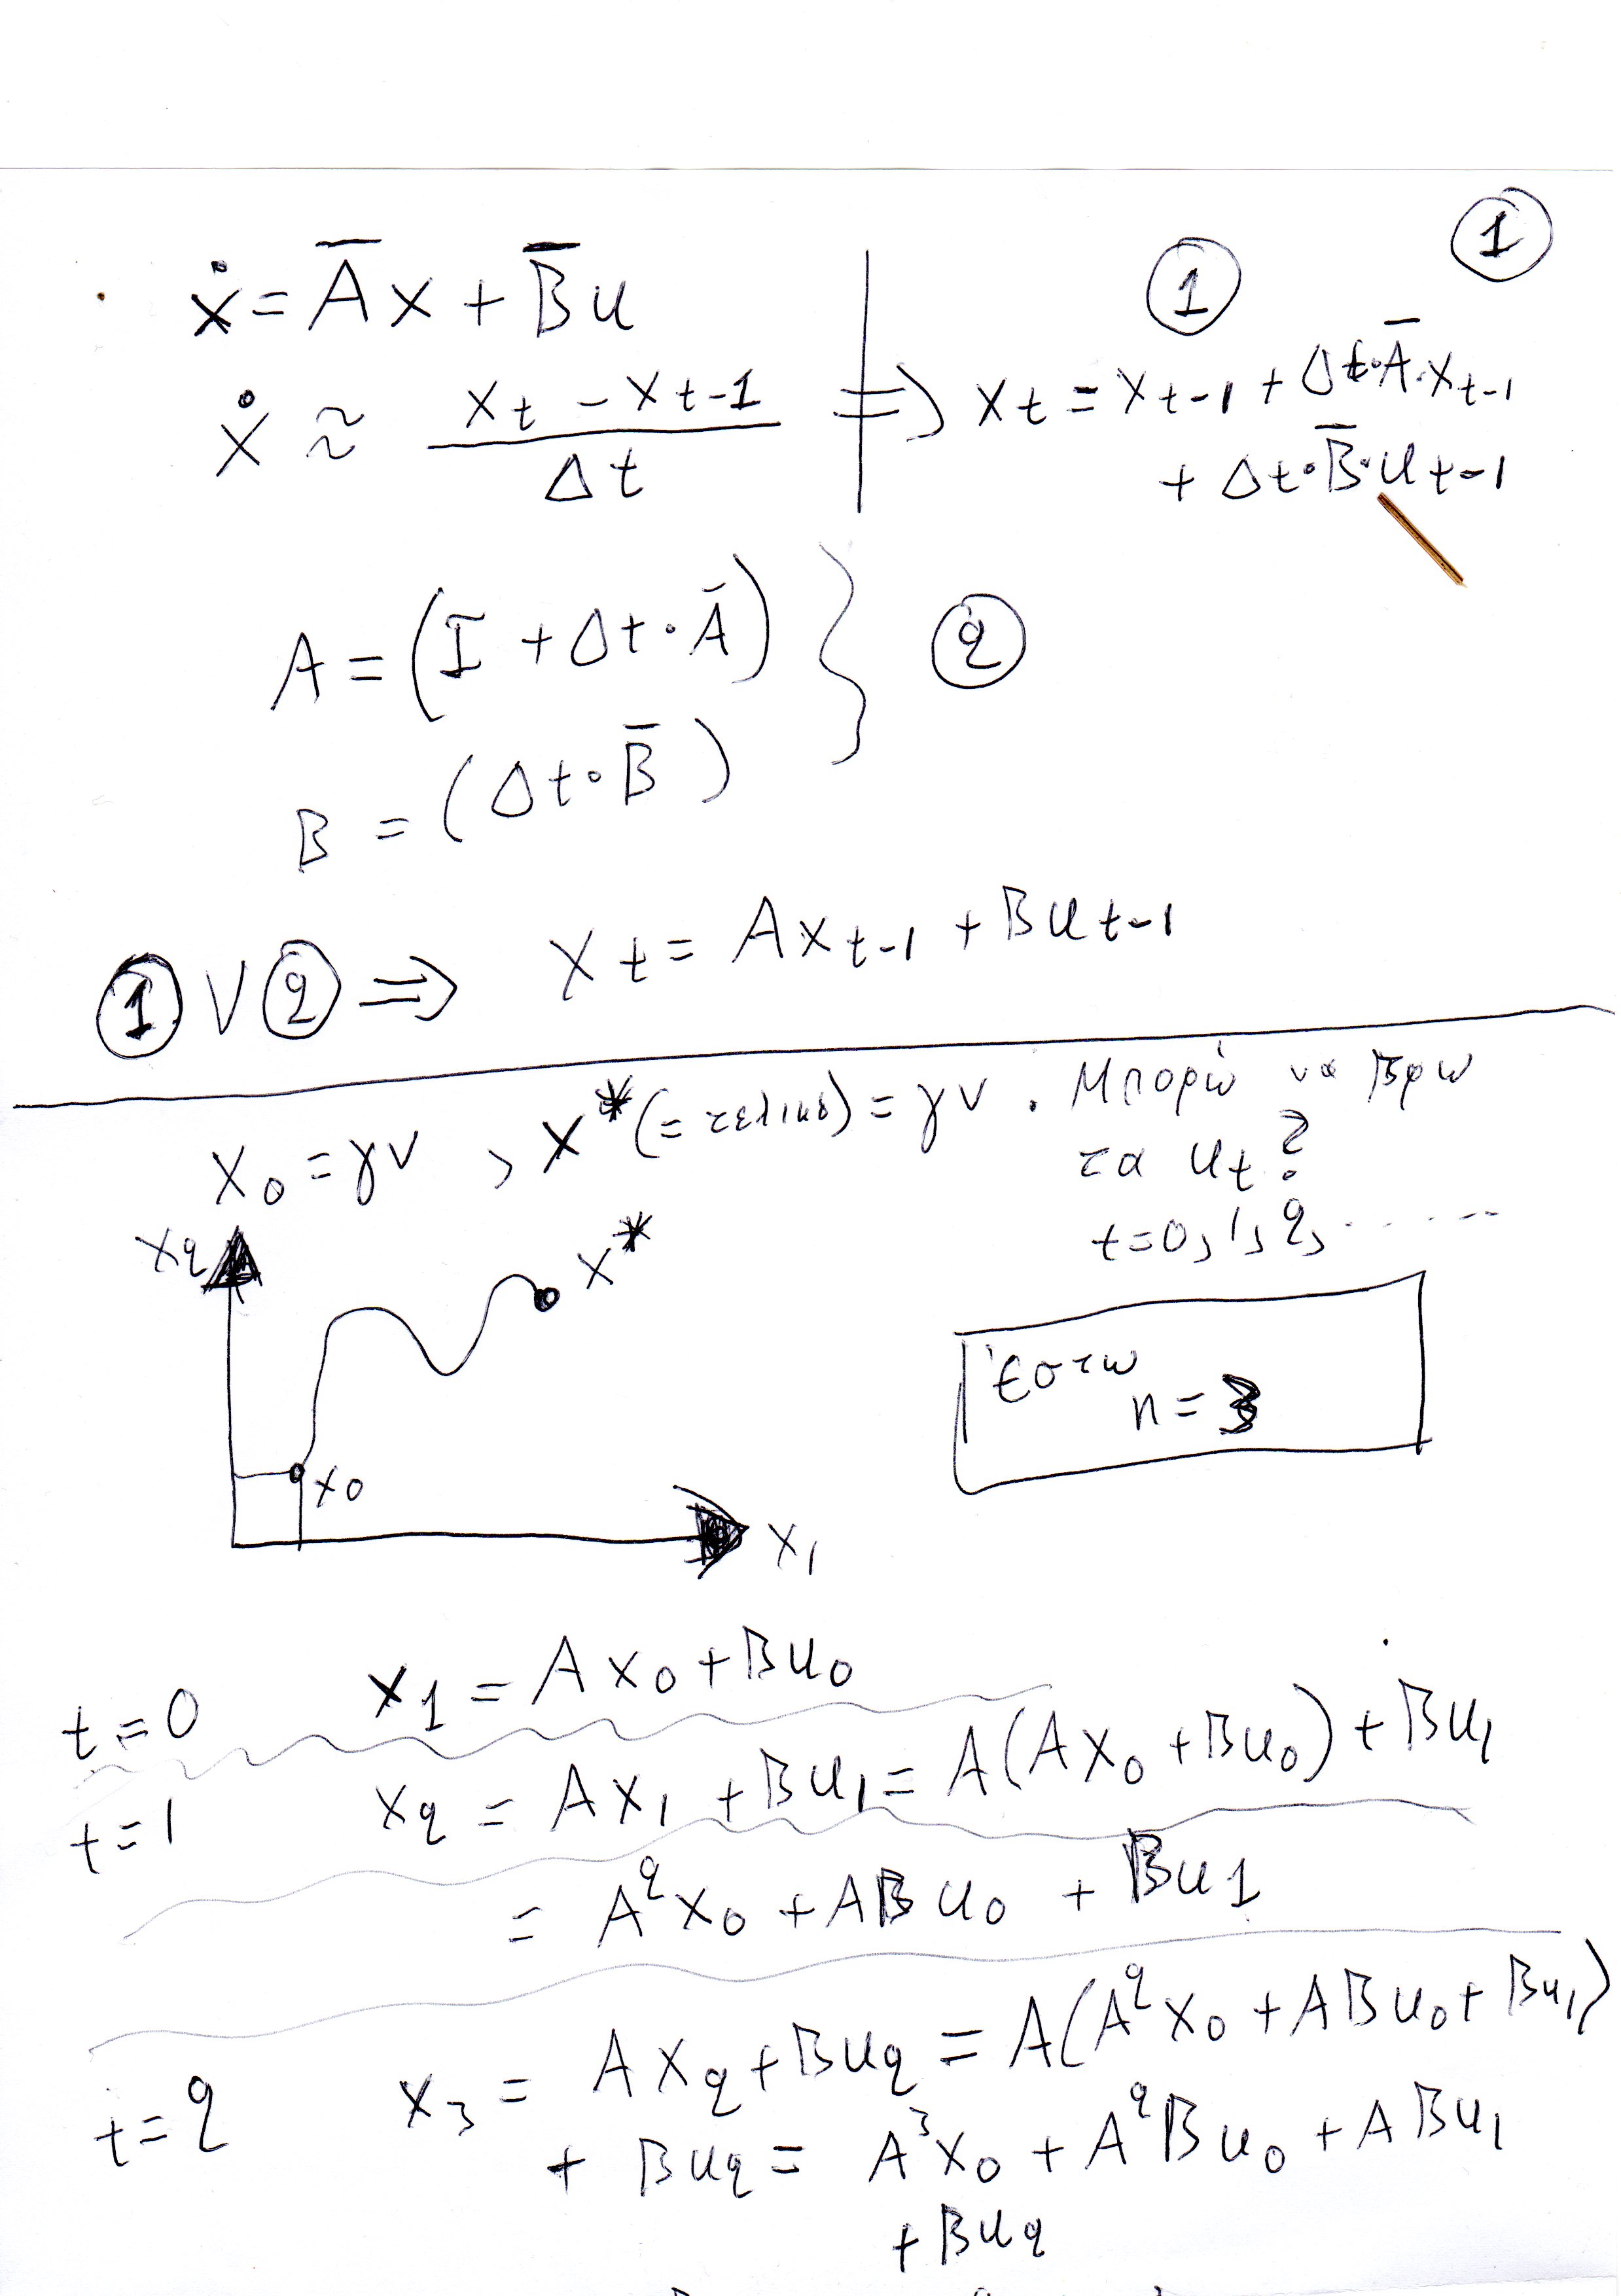 1
ẋ = A̅x + B̅u
1
ẋ ≈ (x_t - x_{t-1}) / Δt ⇒ x_t = x_{t-1} + Δt·A̅·x_{t-1}
+ Δt·B̅·u_{t-1}
A = (I + Δt·A̅)
2
B = (Δt·B̅)
1 V 2 ⇒ x_t = Ax_{t-1} + Bu_{t-1}
x_0 = γν , x*(=τελικό) = γν . Μπορώ να βρω
τα u_t ?
t=0,1,2,......
x_2
x*
Έστω
n = 3
x_0
x_1
t=0 x_1 = Ax_0 + Bu_0
t=1 x_2 = Ax_1 + Bu_1 = A(Ax_0 + Bu_0) + Bu_1
= A²x_0 + ABu_0 + Bu_1
t=2 x_3 = Ax_2 + Bu_2 = A(A²x_0 + ABu_0 + Bu_1)
+ Bu_2 = A³x_0 + A²Bu_0 + ABu_1
+ Bu_2